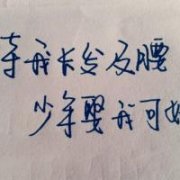 等我长发及腰
少年娶我可好